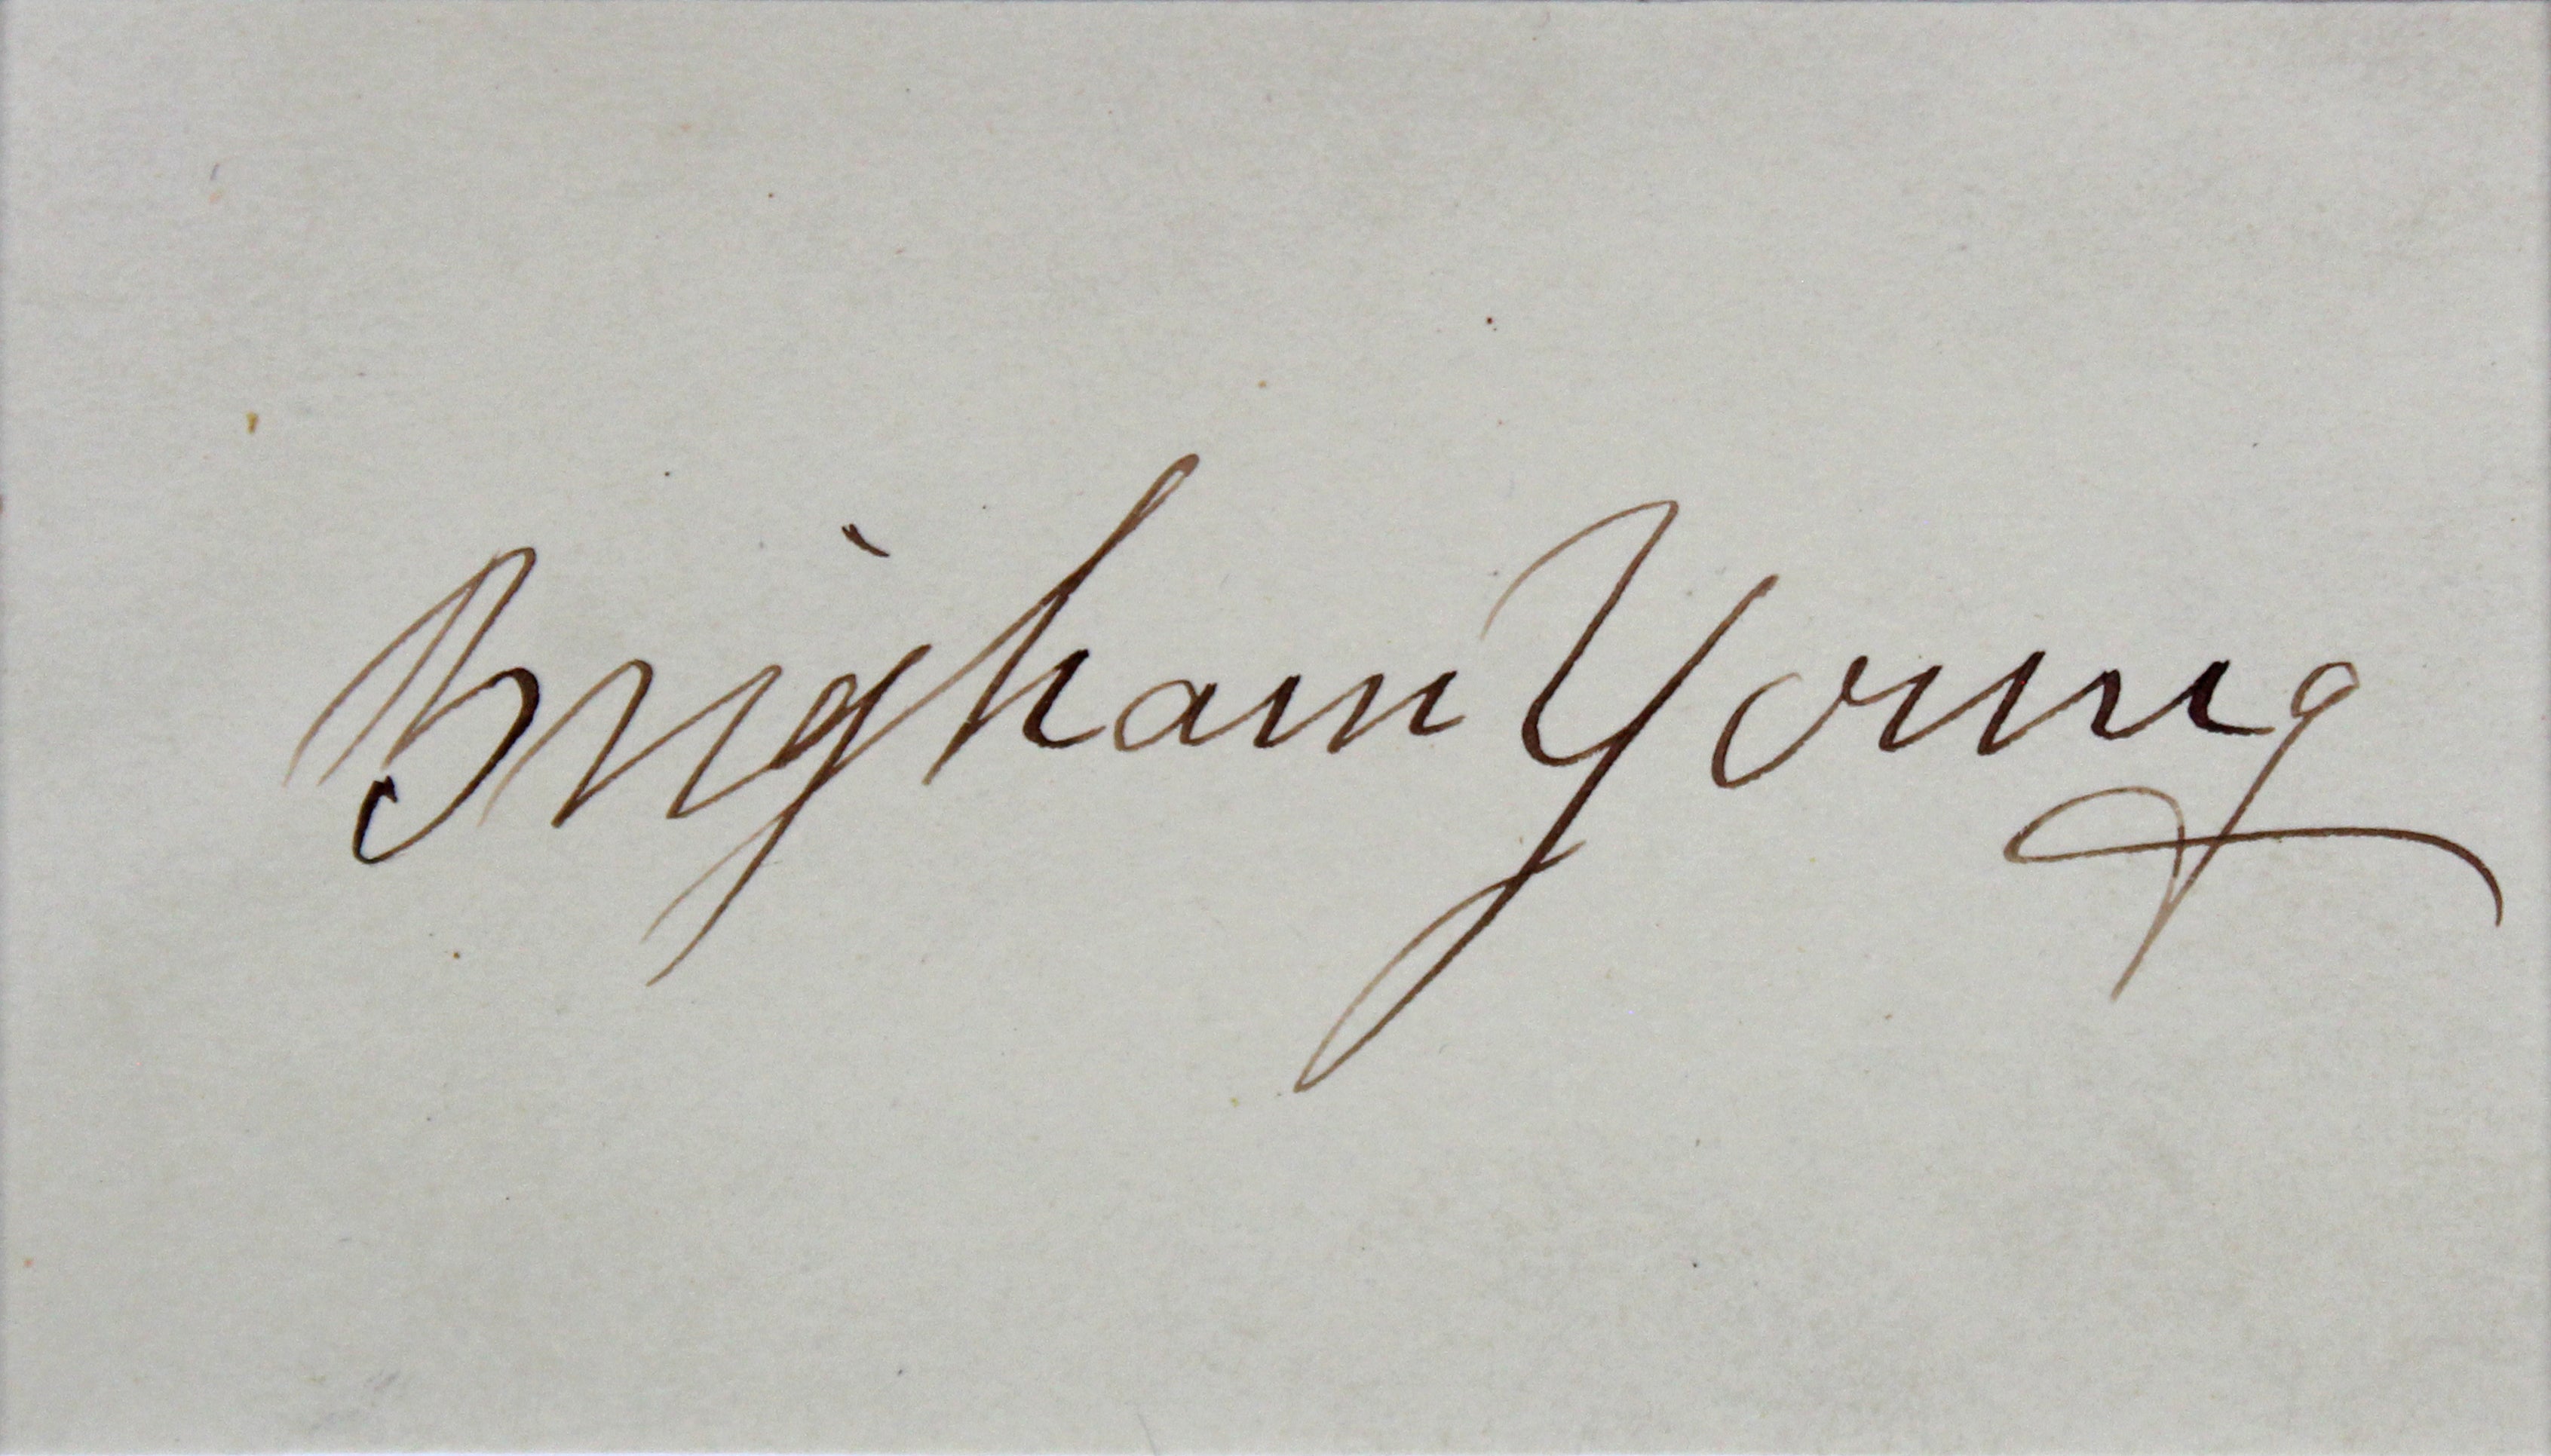 Brigham Young